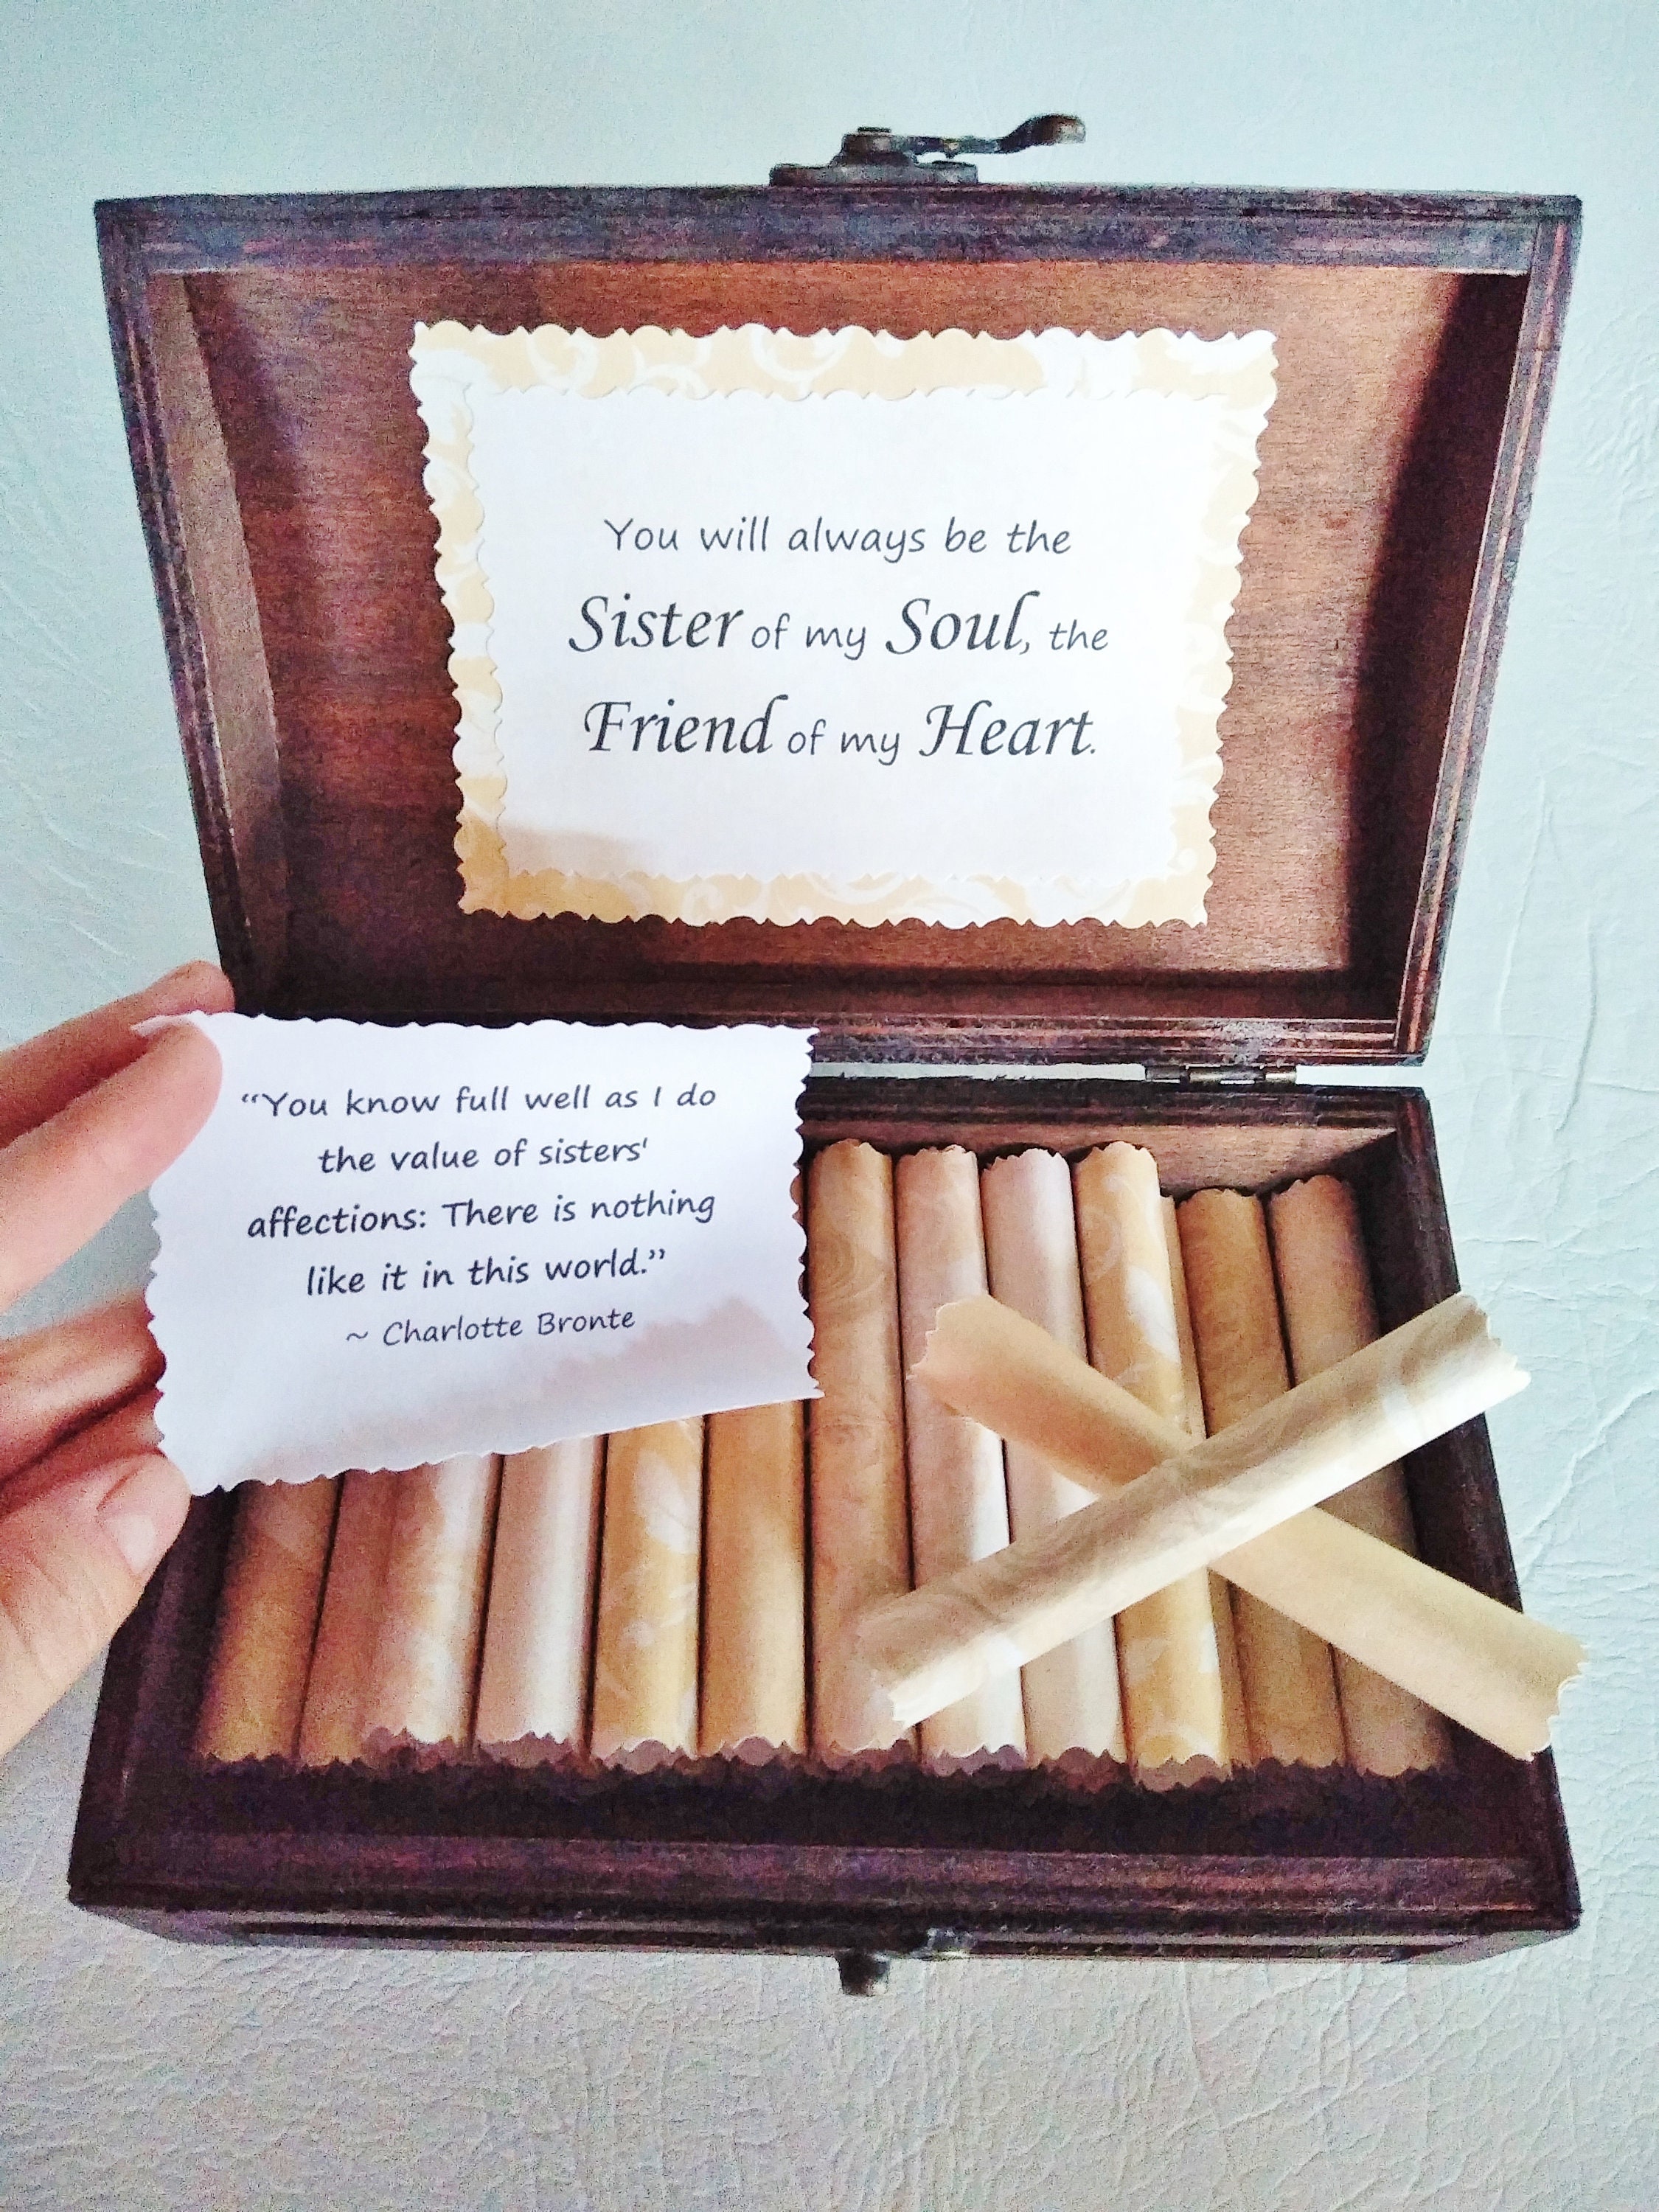 You will always be the
Sister of my Soul, the
Friend of my Heart.
“You know full well as I do
the value of sisters'
affections: There is nothing
like it in this world.”
~ Charlotte Bronte